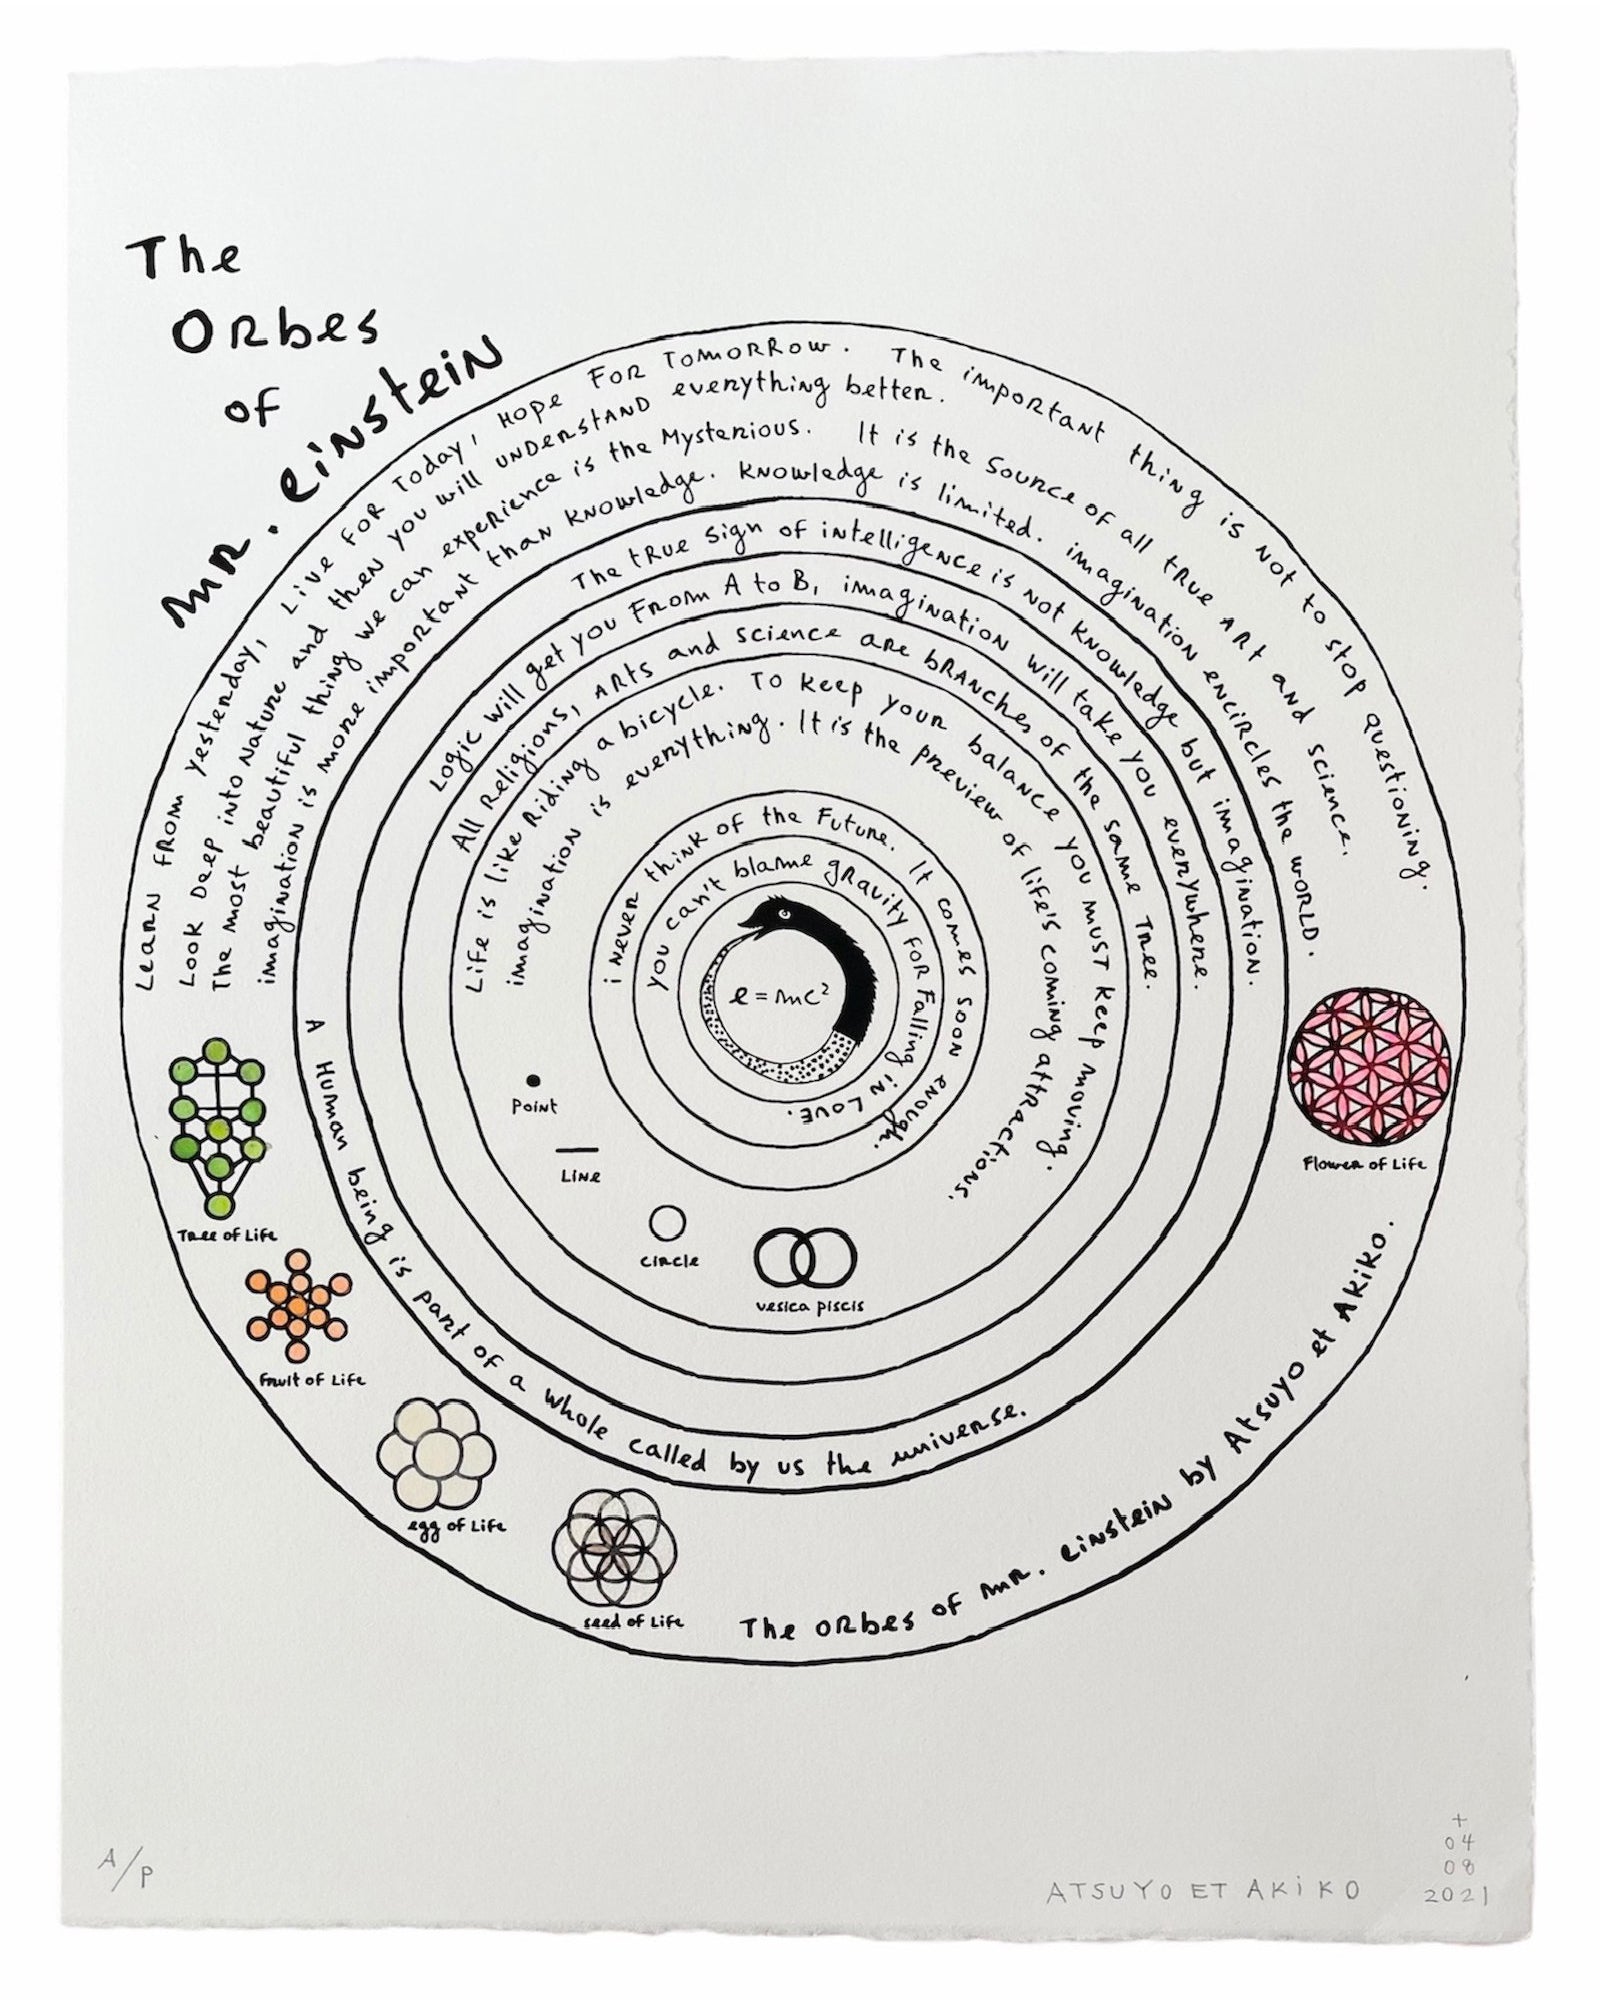 The
Orbes
of
Mr. Einstein
Learn from yesterday, Live for Today, Hope For Tomorrow. The important thing is not to stop questioning.
Look Deep into Nature and then you will understand everything better.
The most beautiful thing we can experience is the Mysterious. It is the Source of all true Art and science.
imagination is more important than knowledge. Knowledge is limited. imagination encircles the world.
The true sign of intelligence is not knowledge but imagination.
Logic will get you From A to B, imagination will take you everywhere.
All Religions, Arts and science are branches of the same Tree.
Life is like Riding a bicycle. To keep your balance you must keep moving.
imagination is everything. It is the preview of life's coming attractions.
i never think of the Future. It comes soon enough.
you can't blame gravity for Falling in Love.
e=mc²
Point
Line
circle
vesica piscis
A Human being is part of a whole called by us the universe.
Tree of Life
fruit of Life
egg of Life
seed of Life
Flower of Life
The Orbes of Mr. Einstein by Atsuyo et Akiko.
A/P
ATSUYO ET AKiKO
+
04
08
2021